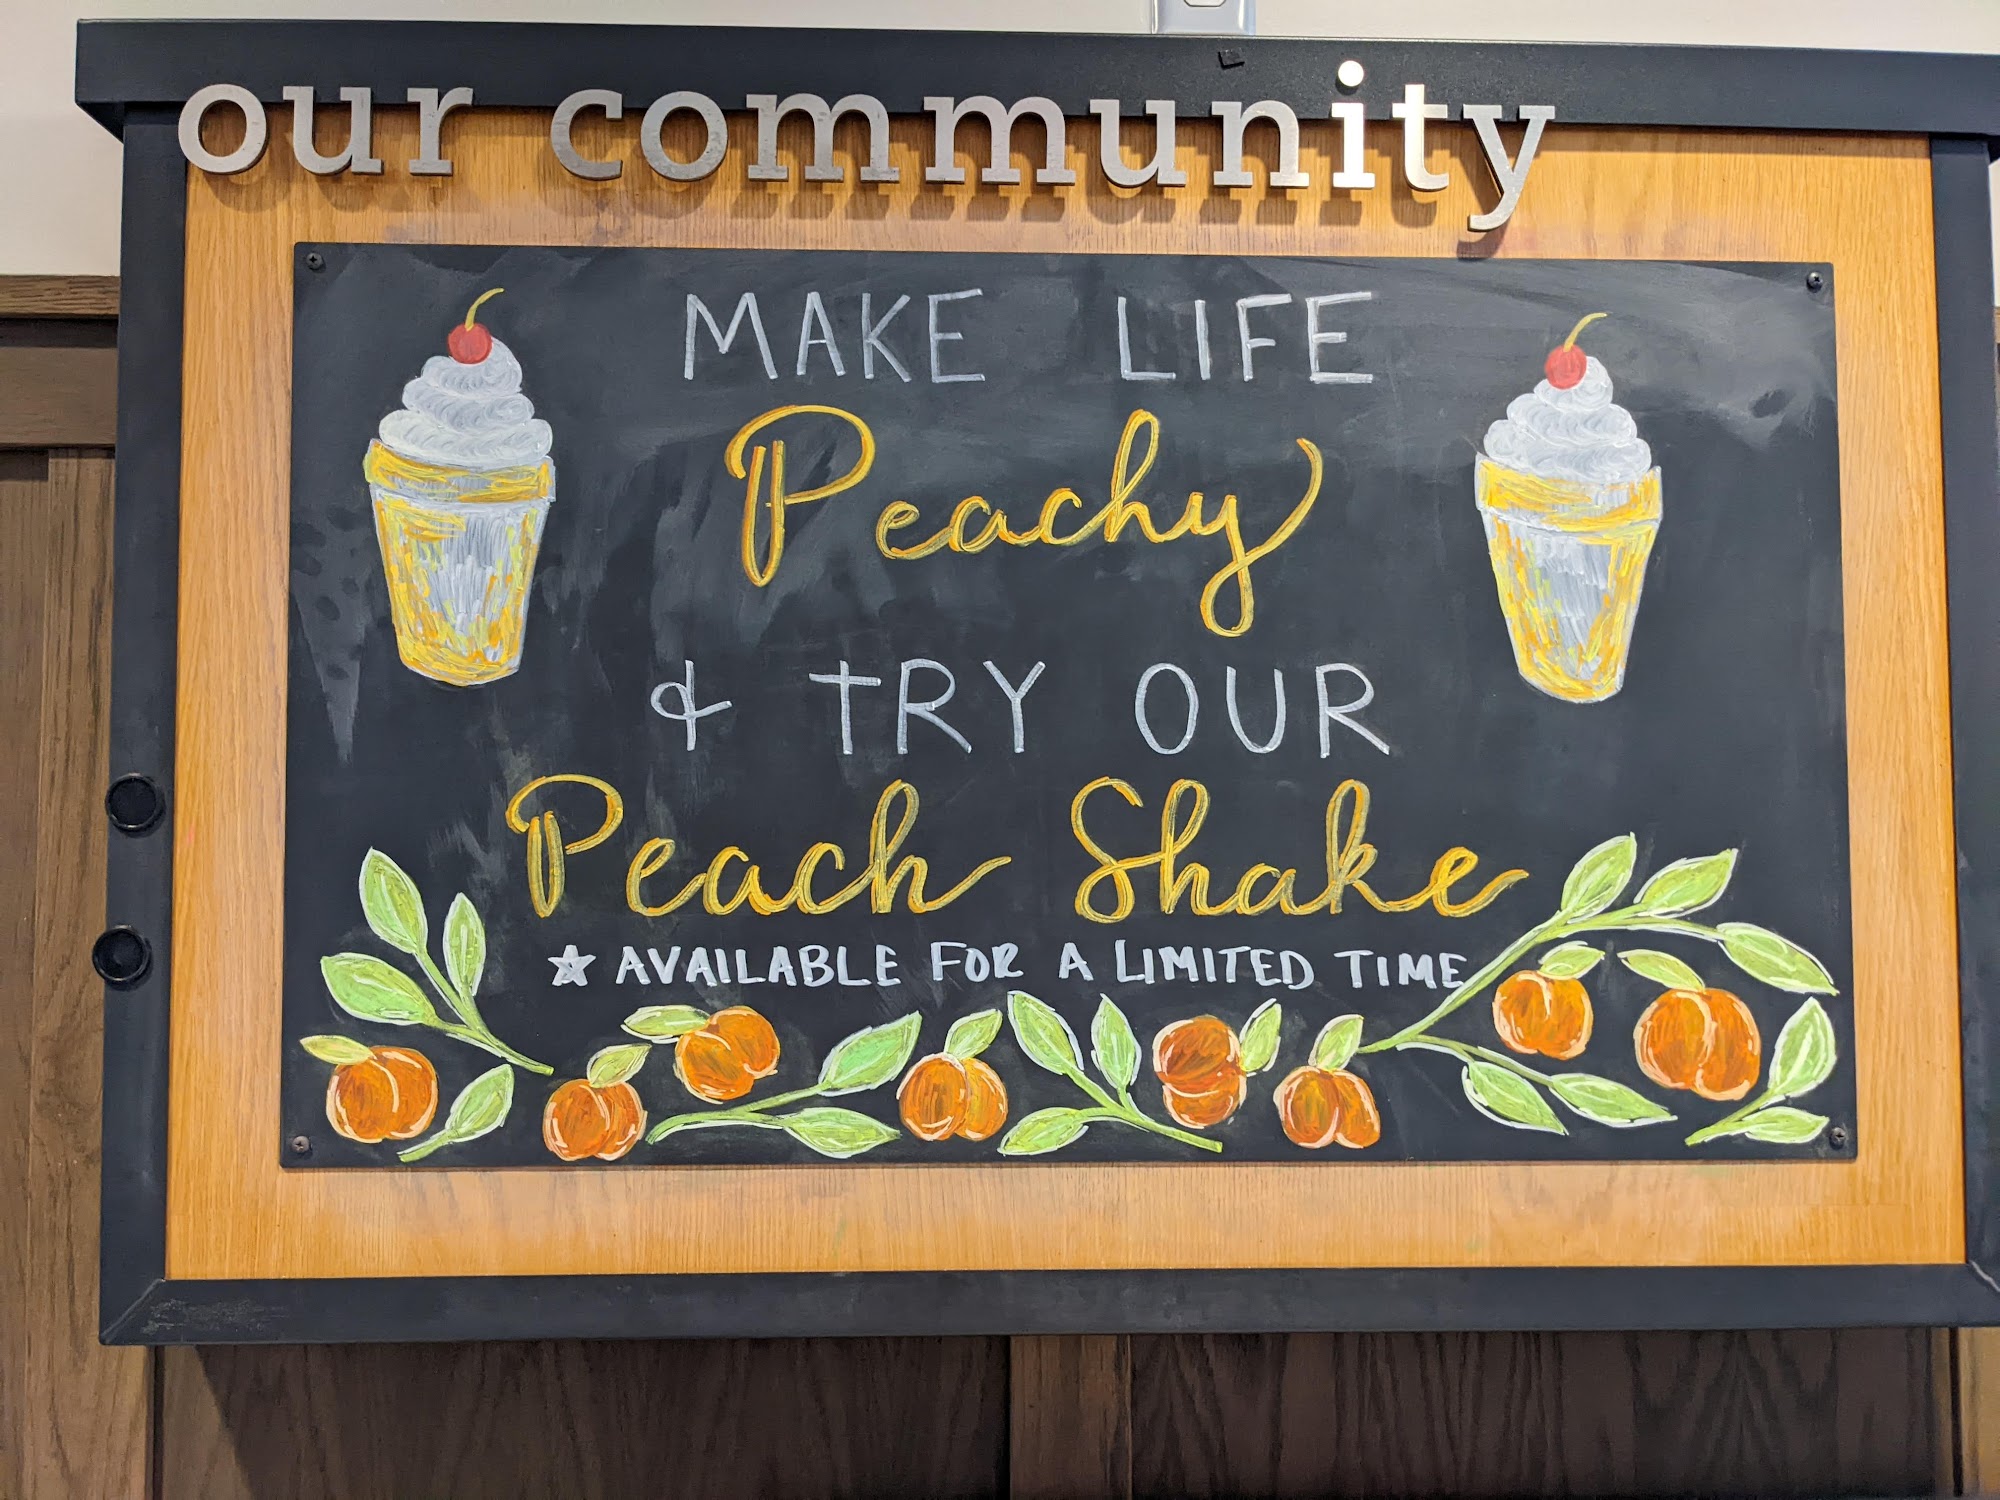 our community
MAKE LIFE
Peachy
& TRY OUR
Peach Shake
☆ AVAILABLE FOR A LIMITED TIME